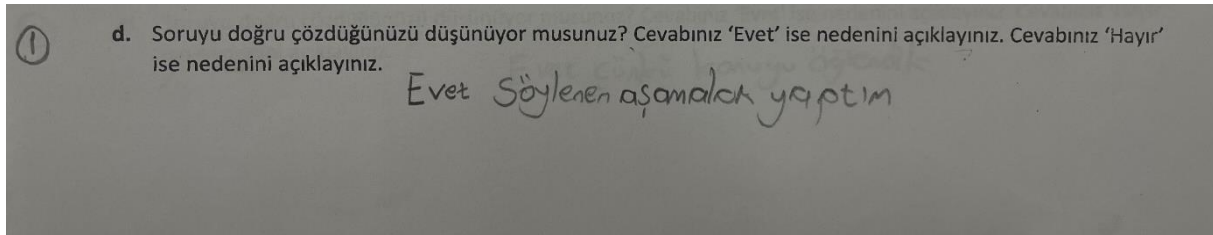 ① d. Soruyu doğru çözdüğünüzü düşünüyor musunuz? Cevabınız ‘Evet’ ise nedenini açıklayınız. Cevabınız ‘Hayır’
ise nedenini açıklayınız.
Evet Söylenen aşamaları yaptım